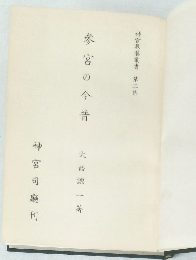 神宮教養叢書 第三集
參宮の今昔
大西源一著
神宮司廳刊